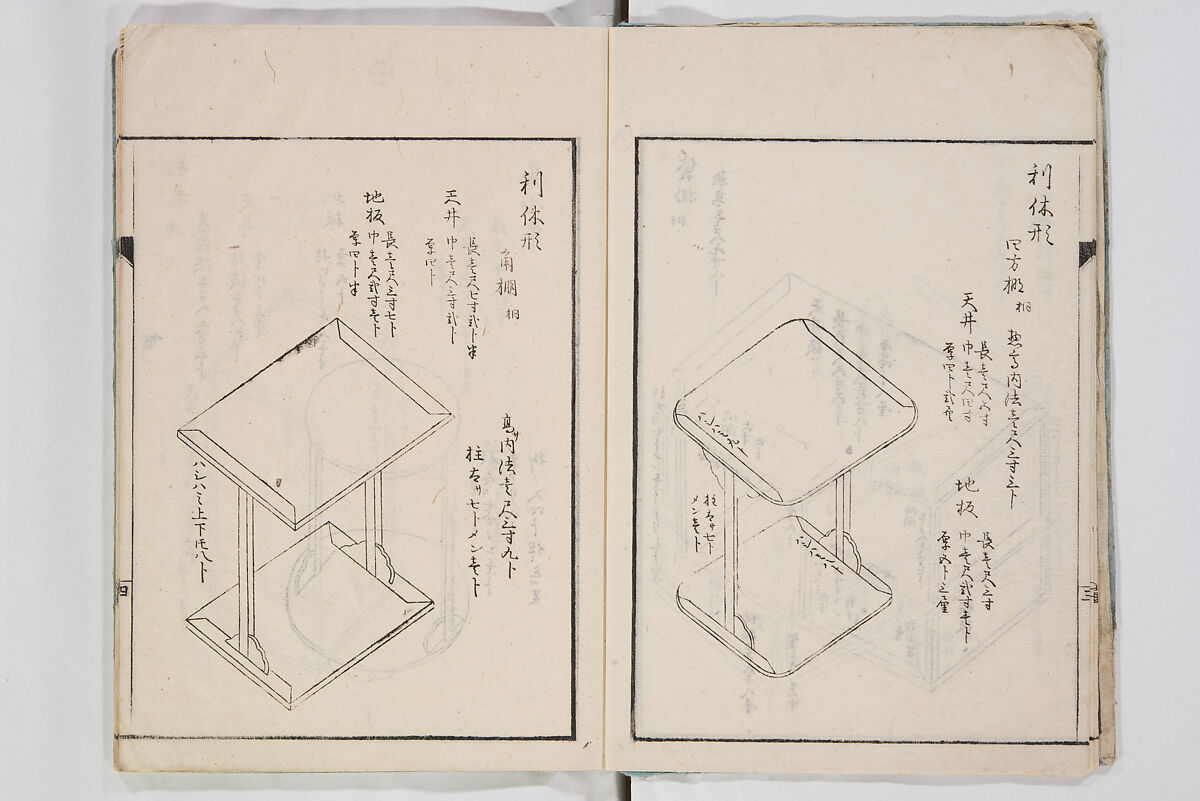 利休形
四方棚 桐
惣高内法壱尺三寸三ト
天井
長壱尺四寸
巾壱尺四寸
厚四ト弐リン
地板
長壱尺三寸
巾壱尺弐寸壱ト
厚五ト三厘
柱太サ七ト
メン壱ト
三
利休形
角棚 桐
天井
長壱尺七寸弐ト半
巾壱尺三寸弐ト
厚四ト
地板
長壱尺三寸七ト
巾壱尺弐寸壱ト
厚四ト半
高サ内法壱尺三寸九ト
柱太サ七トメン壱ト
ハシハミ上下トモ八ト
四